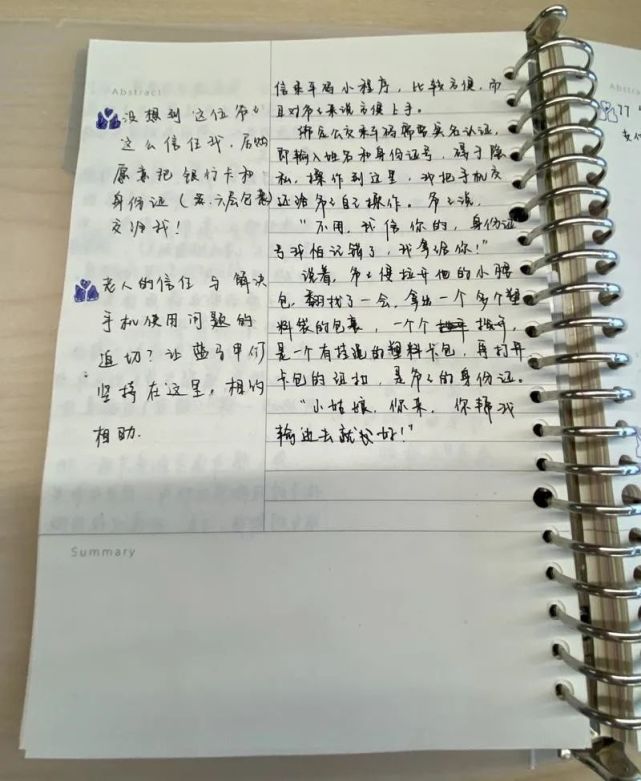 Abstract
没想到这位爷爷
这么信任我,后面
愿意把银行卡和
身份证(共六层包裹)
交给我!
老人的信任与解决
手机使用问题的
迫切?让蓝马甲们
坚持在这里,相约
相助.
信乘车码小程序,比较方便,而
且对爷爷来说方便上手。
绑定公交乘车码需要实名认证,
即输入姓名和身份证号,碍于隐
私,操作到这里,我把手机交
还给爷爷自己操作。爷爷说,
“不用,我信你的,身份证
号我怕记错了,我拿给你!”
说着,爷爷便拉开他的小腰
包,翻找了一会,拿出一个多个塑
料袋的包裹,一个个 打开,
是一个有花纹的塑料卡包,再打开
卡包的纽扣,是爷爷的身份证。
“小姑娘,你来,你帮我
输进去就好!”
Summary